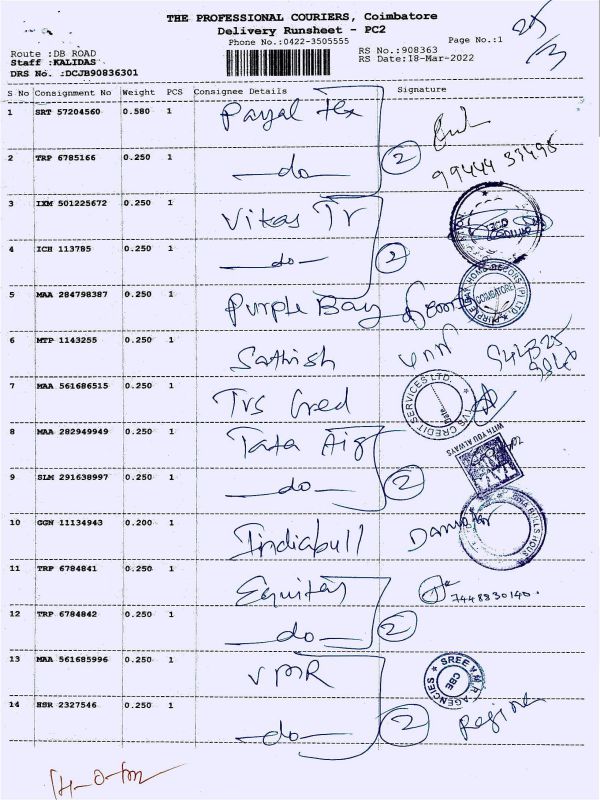 THE PROFESSIONAL COURIERS, Coimbatore
Delivery Runsheet - PC2
Phone No.:0422-3505555
Page No.:1
Route :DB ROAD
RS No.:908363
Staff :KALIDAS
RS Date:18-Mar-2022
DRS No. :DCJB90836301
S No Consignment No Weight PCS Consignee Details Signature
1 SRT 57204560 0.580 1 Payal Tex
2 TRP 6785166 0.250 1 —do— 2
99444 33495
3 IXM 501225672 0.250 1 Vikas Tr
4 ICH 113785 0.250 1 —do— 2
5 MAA 284798387 0.250 1 Purple Bay
COIMBATORE
6 MTP 1143255 0.250 1 Sathish
7 MAA 561686515 0.250 1 Tvs Cred
TVS CREDIT SERVICES LTD.
8 MAA 282949949 0.250 1 Tata Aig
WITH YOU ALWAYS
9 SLM 291638997 0.250 1 —do— 2
10 GGN 11134943 0.200 1 Indiabull
11 TRP 6784841 0.250 1 Equitas
7448830140.
12 TRP 6784842 0.250 1 —do— 2
13 MAA 561685996 0.250 1 VMR
SREE VMR AGENCIES CBE
14 HSR 2327546 0.250 1 —do— 2